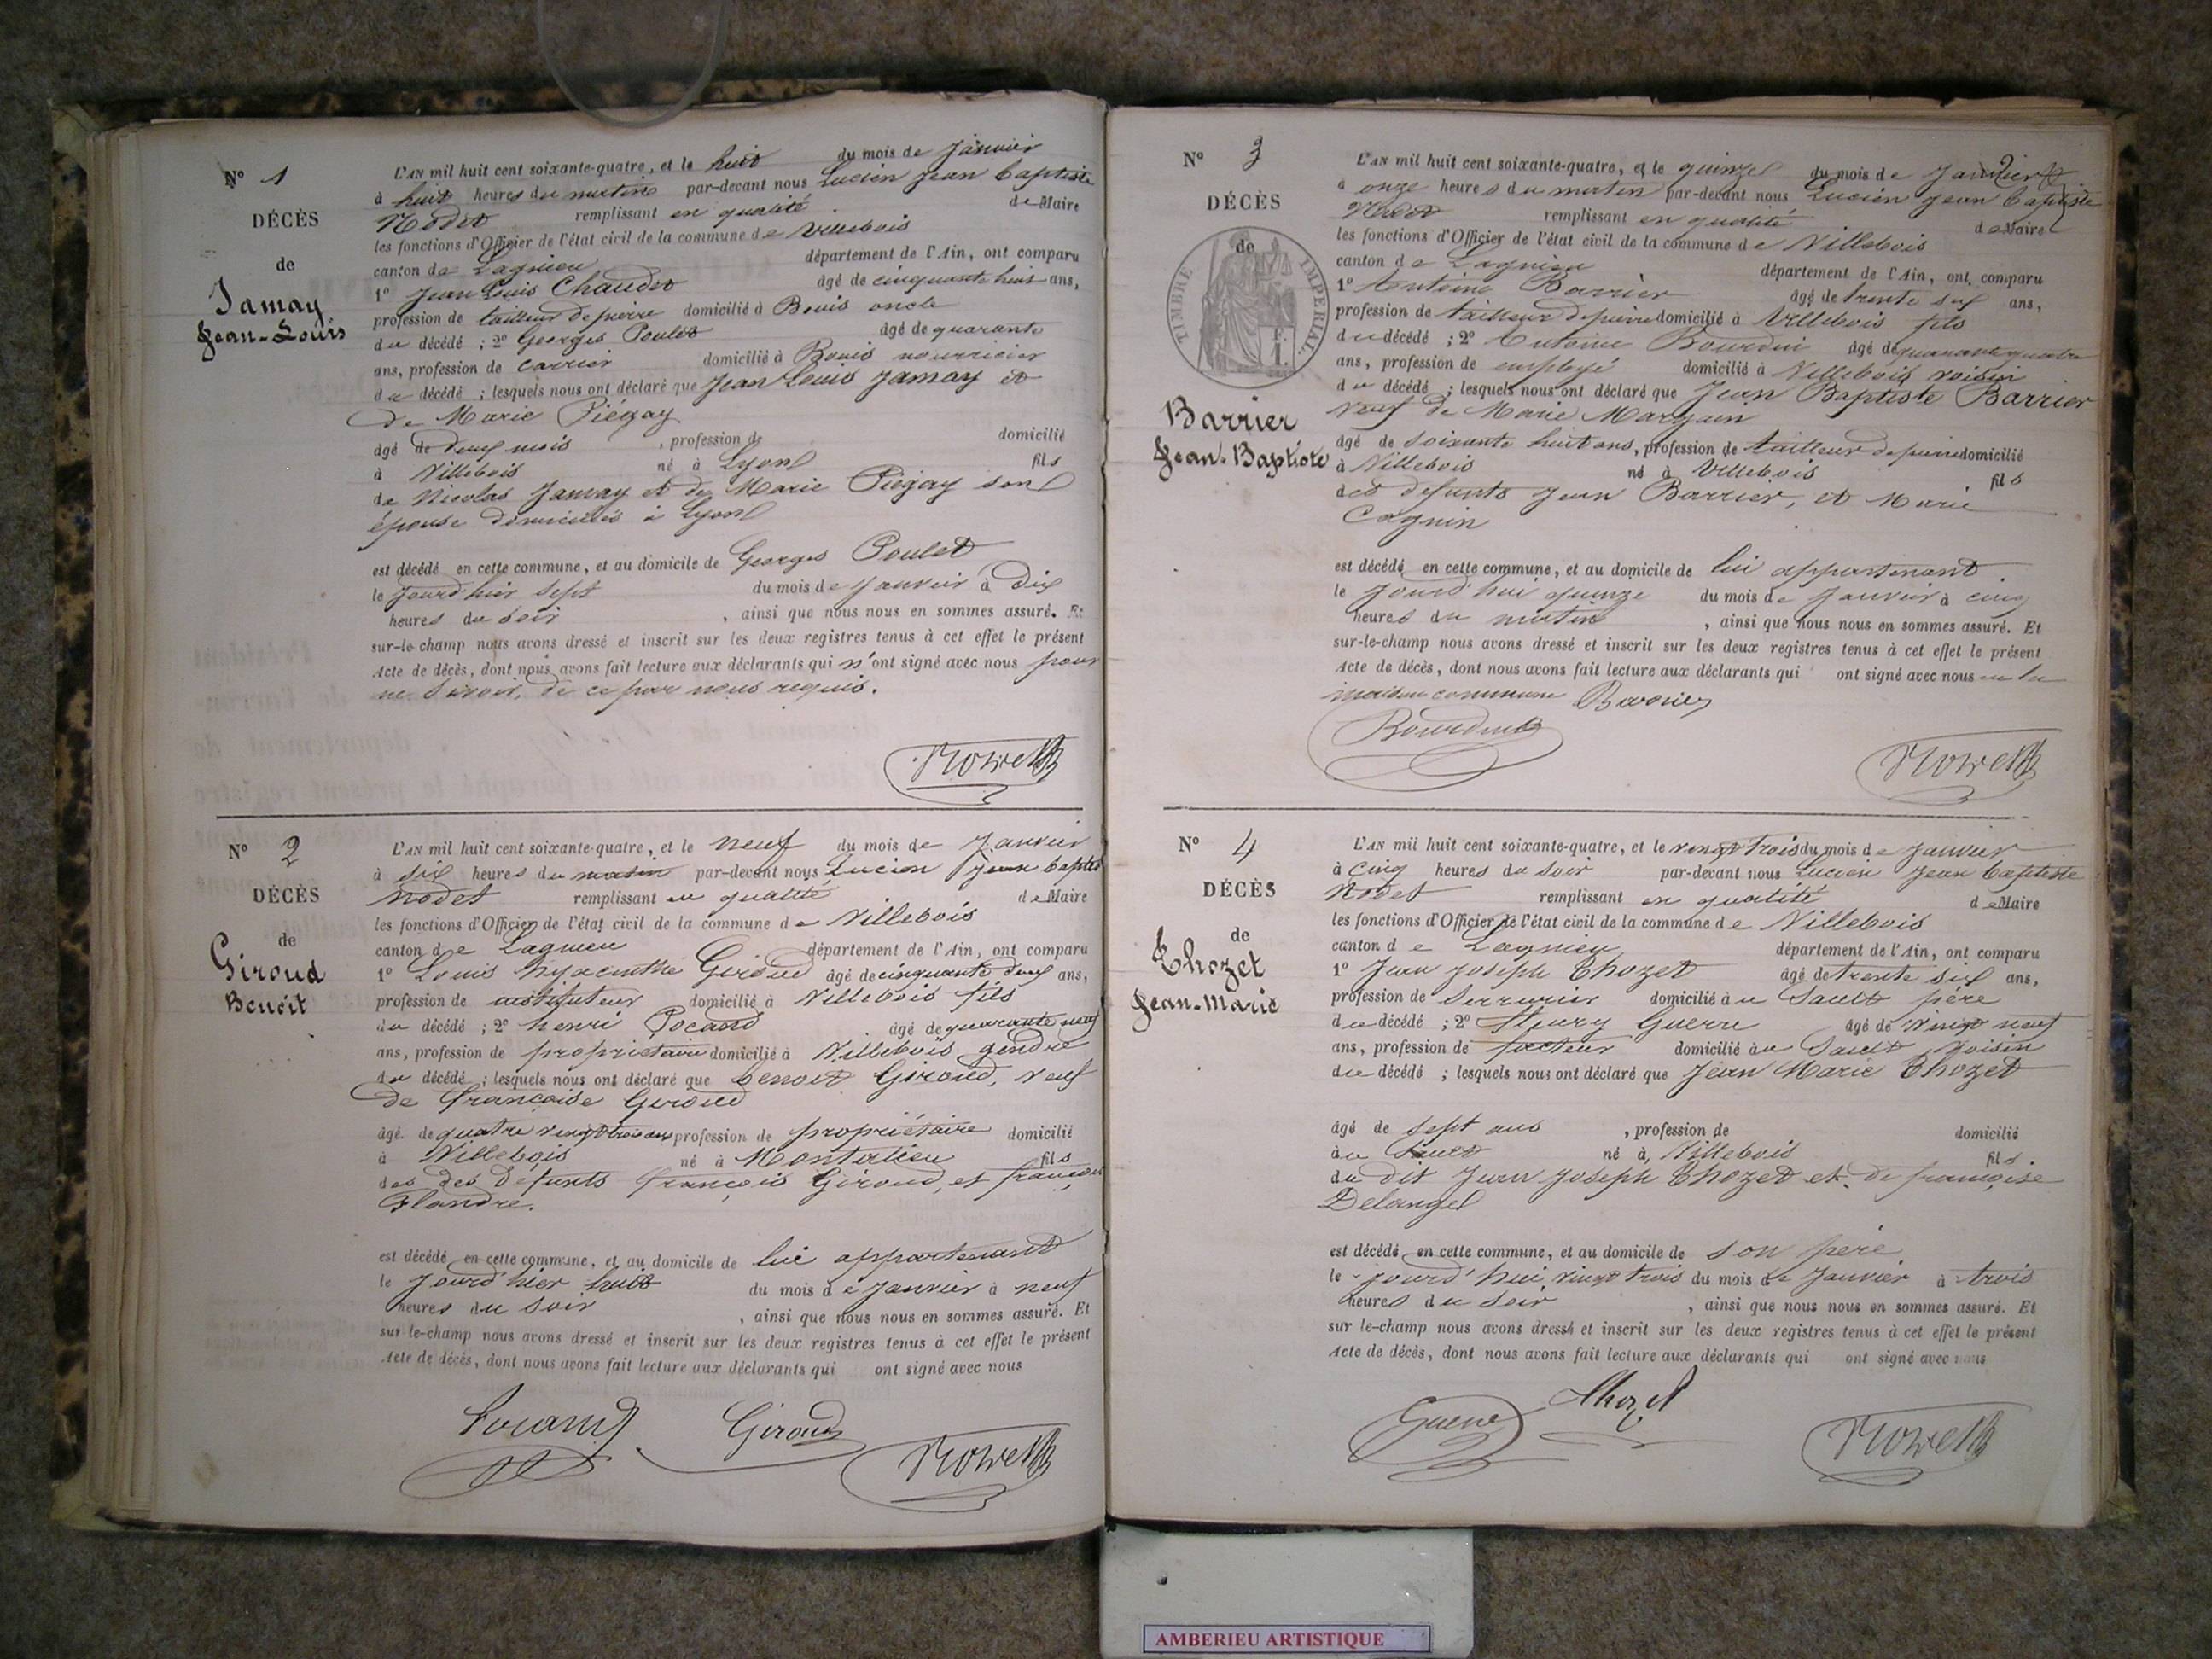 N° 1
DÉCÈS
de
Jamay
Jean-Louis
L'AN mil huit cent soixante-quatre, et le huit du mois de Janvier
à huit heures du matin par-devant nous Lucien Jean Baptiste
Nodet remplissant en qualité de Maire
les fonctions d'Officier de l'état civil de la commune de Villebois
canton de Lagnieu département de l'Ain, ont comparu
1° Jean Louis Chaudet âgé de cinquante huit ans,
profession de tailleur de pierre domicilié à Bouis oncle
du décédé ; 2° Georges Poulet âgé de quarante
ans, profession de carrier domicilié à Bouis nourricier
du décédé ; lesquels nous ont déclaré que Jean Louis Jamay et
de Marie Piégay
âgé de deux mois , profession de domicilié
à Villebois né à Lyon fils
de Nicolas Jamay et de Marie Piégay son
épouse domiciliés à Lyon
est décédé en cette commune, et au domicile de Georges Poulet
le jourd'hier sept du mois de Janvier à dix
heures du soir , ainsi que nous nous en sommes assuré. Et
sur-le-champ nous avons dressé et inscrit sur les deux registres tenus à cet effet le présent
Acte de décès, dont nous avons fait lecture aux déclarants qui n'ont signé avec nous pour
ne savoir, de ce par nous requis.
N° 2
DÉCÈS
de
Giroud
Benoît
L'AN mil huit cent soixante-quatre, et le neuf du mois de Janvier
à six heures du matin par-devant nous Lucien Jean Baptiste
Nodet remplissant en qualité de Maire
les fonctions d'Officier de l'état civil de la commune de Villebois
canton de Lagnieu département de l'Ain, ont comparu
1° Louis hyacinthe Giroud âgé de cinquante deux ans,
profession de instituteur domicilié à Villebois fils
du décédé ; 2° henri Pocard âgé de quarante neuf
ans, profession de propriétaire domicilié à Villebois gendre
du décédé ; lesquels nous ont déclaré que benoit Giroud, veuf
de françoise Giroud
âgé de quatre vingt trois ans profession de propriétaire domicilié
à Villebois né à Montalieu fils
des des défunts françois Giroud, et françoise
Flandre.
est décédé en cette commune, et au domicile de lui appartenant
le jourd'hier huit du mois de Janvier à neuf
heures du soir , ainsi que nous nous en sommes assuré. Et
sur-le-champ nous avons dressé et inscrit sur les deux registres tenus à cet effet le présent
Acte de décès, dont nous avons fait lecture aux déclarants qui ont signé avec nous
Giroud
N° 3
DÉCÈS
de
TIMBRE IMPERIAL.
F.
1.
Barrier
Jean-Baptiste
L'AN mil huit cent soixante-quatre, et le quinze du mois de Janvier
à onze heures du matin par-devant nous Lucien Jean Baptiste
Nodet remplissant en qualité de Maire
les fonctions d'Officier de l'état civil de la commune de Villebois
canton de Lagnieu département de l'Ain, ont comparu
1° Antoine Barrier âgé de trente six ans,
profession de tailleur de pierre domicilié à Villebois fils
du décédé ; 2° Antoine Bourdin âgé de quarante quatre
ans, profession de employé domicilié à Villebois voisin
du décédé ; lesquels nous ont déclaré que Jean Baptiste Barrier
veuf de Marie Margain
âgé de soixante huit ans, profession de tailleur de pierre domicilié
à Villebois né à Villebois fils
des défunts Jean Barrier, et Marie
Cognin
est décédé en cette commune, et au domicile de lui appartenant
le jourd'hui quinze du mois de Janvier à cinq
heures du matin , ainsi que nous nous en sommes assuré. Et
sur-le-champ nous avons dressé et inscrit sur les deux registres tenus à cet effet le présent
Acte de décès, dont nous avons fait lecture aux déclarants qui ont signé avec nous en la
maison commune Barrier
Bourdin
N° 4
DÉCÈS
de
Thozet
Jean-Marie
L'AN mil huit cent soixante-quatre, et le vingt trois du mois de Janvier
à cinq heures du soir par-devant nous Lucien Jean baptiste
Nodet remplissant en qualité de Maire
les fonctions d'Officier de l'état civil de la commune de Villebois
canton de Lagnieu département de l'Ain, ont comparu
1° Jean Joseph Thozet âgé de trente six ans,
profession de Serrurier domicilié à u Sault père
du décédé ; 2° fleury Guerre âgé de vingt neuf
ans, profession de facteur domicilié au Sault voisin
du décédé ; lesquels nous ont déclaré que Jean Marie Thozet
âgé de sept ans , profession de domicilié
au Sault né à Villebois fils
du dit Jean Joseph Thozet et de françoise
Delangel
est décédé en cette commune, et au domicile de son père
le jourd'hui vingt trois du mois de Janvier à trois
heures du soir , ainsi que nous nous en sommes assuré. Et
sur le-champ nous avons dressé et inscrit sur les deux registres tenus à cet effet le présent
Acte de décès, dont nous avons fait lecture aux déclarants qui ont signé avec nous
Thozet
Guerre
AMBERIEU ARTISTIQUE